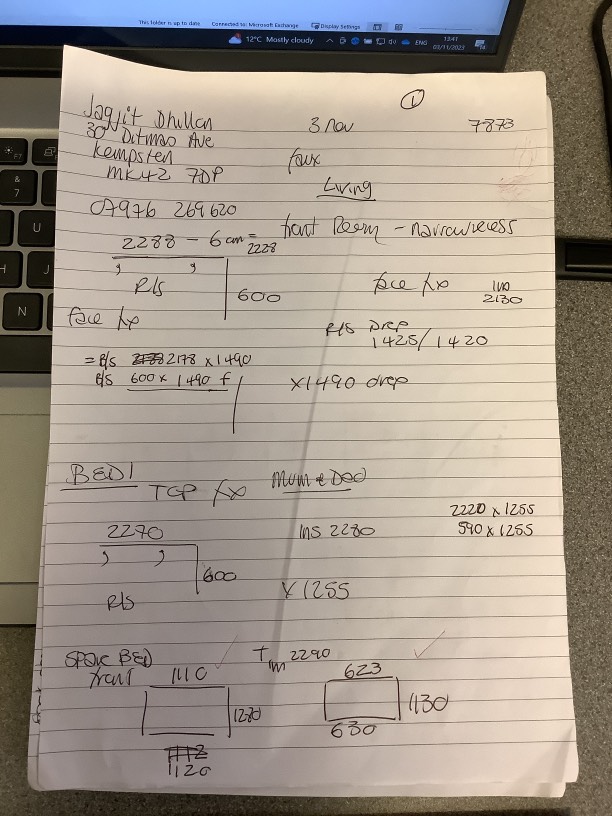 This folder is up to date. Connected to: Microsoft Exchange Display Settings
12°C Mostly cloudy ENG 13:41
03/11/2023
& 7
U
H J
N
1
Jagjit Dhillon 3 nov 7873
30 Ditmas Ave
Kempston faux
MK42 7DP Living
07976 269620
front Room - narrow recess
2288 - 6cm = 2228
R/S 600 face fx ins 2130
face fx R/S Drop
1425/1420
= R/S 2178 x 1490
R/S 600 x 1490 f x1490 drop
BED1 Mum & Dad
TOP fx
2220 x 1255
2270 INS 2280 590 x 1255
600
R/S x 1255
Spare BED 2290
front 1110 623
1280 1130
630
1120